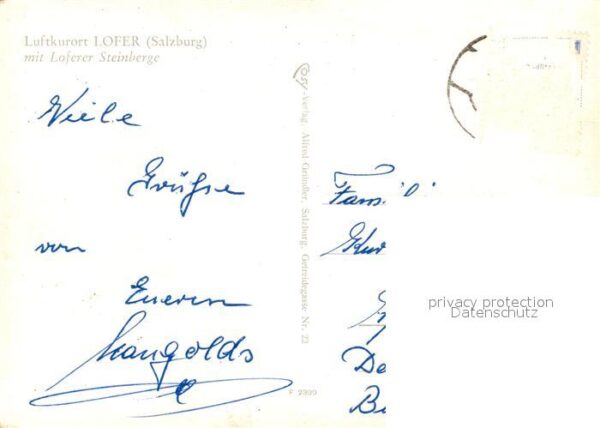 Luftkurort LOFER (Salzburg)
mit Loferer Steinberge
Viele
Grüße
von
Eueren
Mangolds
Cosy-Verlag Alfred Gründler, Salzburg, Getreidegasse Nr. 22
F 2399
Fami
Kur
De
privacy protection
Datenschutz